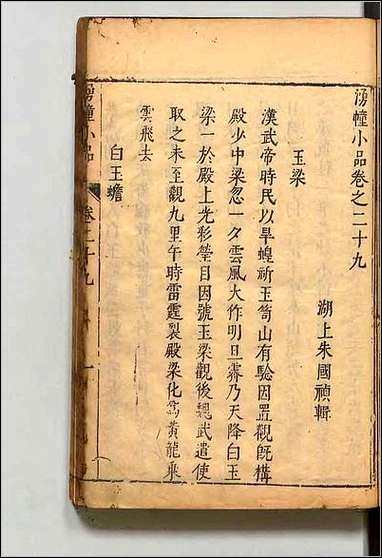 湧幢小品卷之二十九
湖上朱國禎輯
玉梁
漢武帝時民以旱蝗祈玉笥山有驗因置觀旣構
殿少中梁忽一夕雲風大作明旦霽乃天降白玉
梁一於殿上光彩瑩目因號玉梁觀後魏武遣使
取之未至觀九里午時雷霆裂殿梁化爲黃龍乘
雲飛去
白玉蟾
湧幢小品
卷二十九
一